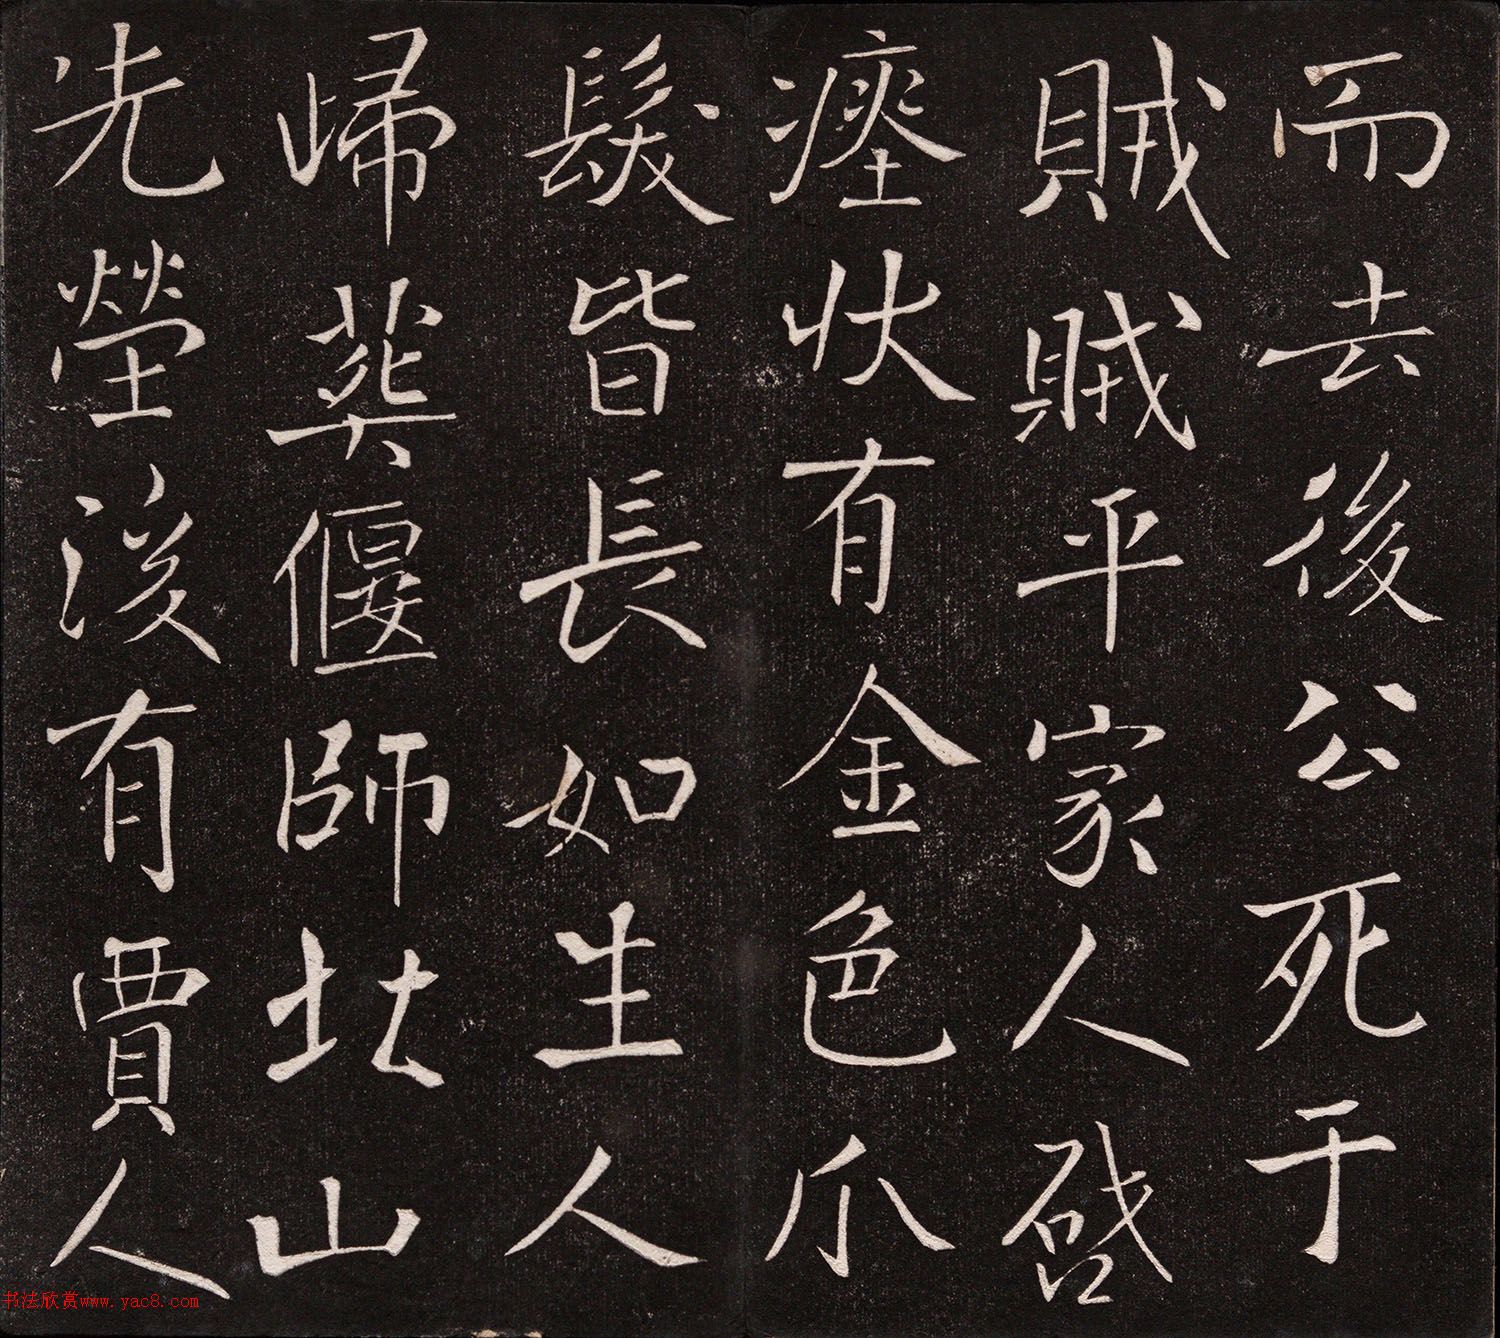 而去後公死于
賊賊平家人啓
瘞狀有金色爪
髮皆長如生人
歸葬偃師北山
先塋後有賈人
书法欣赏www.yac8.com